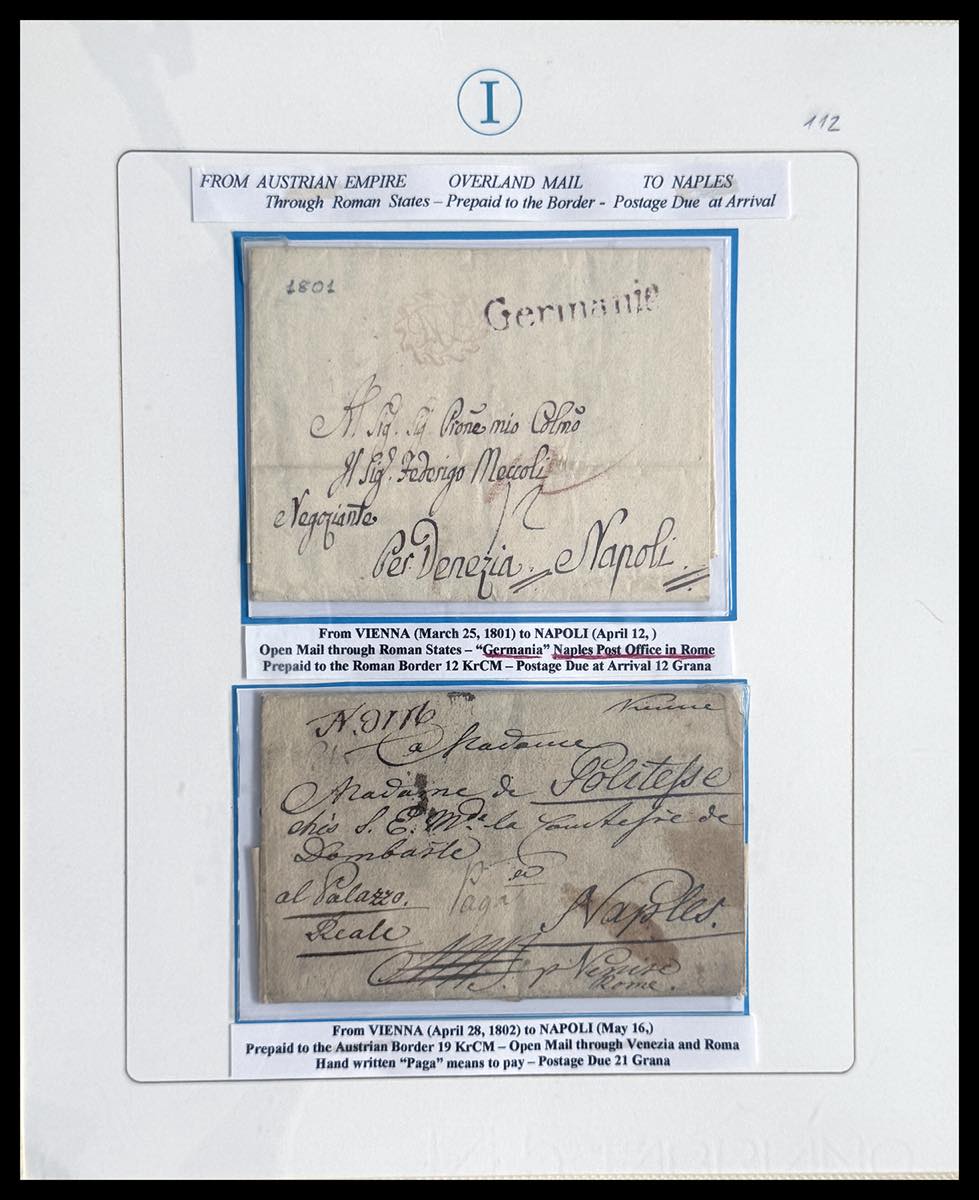 I
112
FROM AUSTRIAN EMPIRE OVERLAND MAIL TO NAPLES
Through Roman States – Prepaid to the Border - Postage Due at Arrival
1801
Germanie
Al Sig. Sig. Proñe mio Colmo
Il Sig. Federigo Meccoli
Negoziante
12
Per Venezia Napoli
From VIENNA (March 25, 1801) to NAPOLI (April 12, )
Open Mail through Roman States – “Germania” Naples Post Office in Rome
Prepaid to the Roman Border 12 KrCM – Postage Due at Arrival 12 Grana
Vienne
a Madame
Madame de Politesse
chés S. E. Mde la Comtesse de
Dombasle
al Palazzo
Reale
Paga
Naples.
p Venise
Rome.
From VIENNA (April 28, 1802) to NAPOLI (May 16,)
Prepaid to the Austrian Border 19 KrCM – Open Mail through Venezia and Roma
Hand written “Paga” means to pay – Postage Due 21 Grana